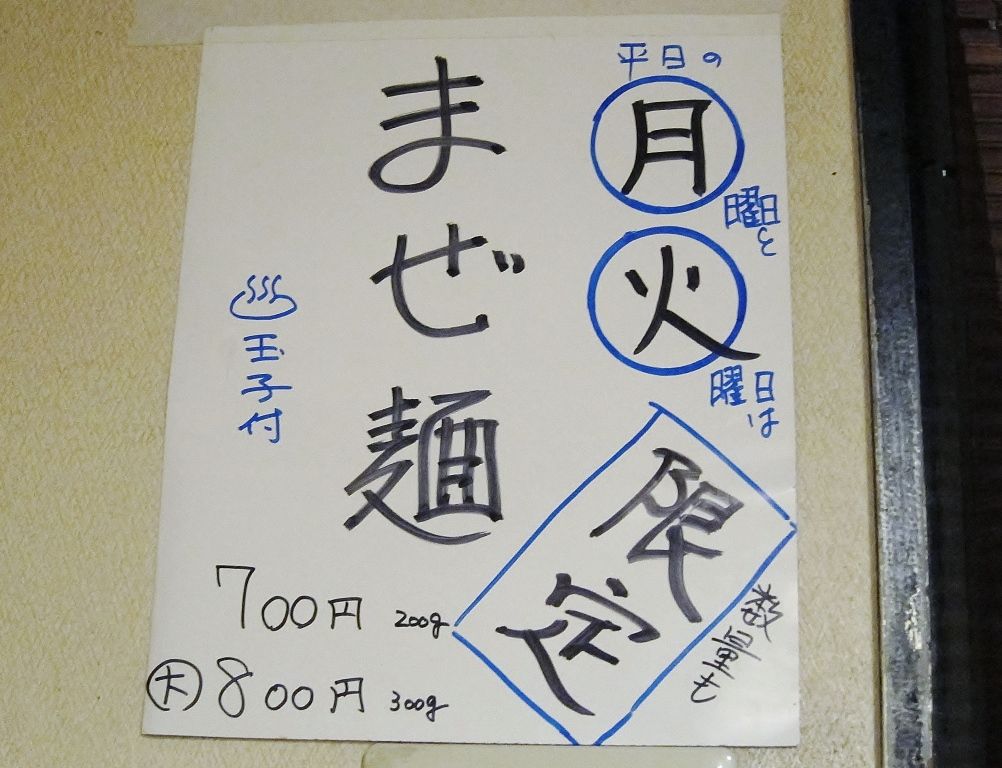 平日の
月
曜日と
火
曜日は
限定
まぜ麺
♨玉子付
700円 200g
大 800円 300g